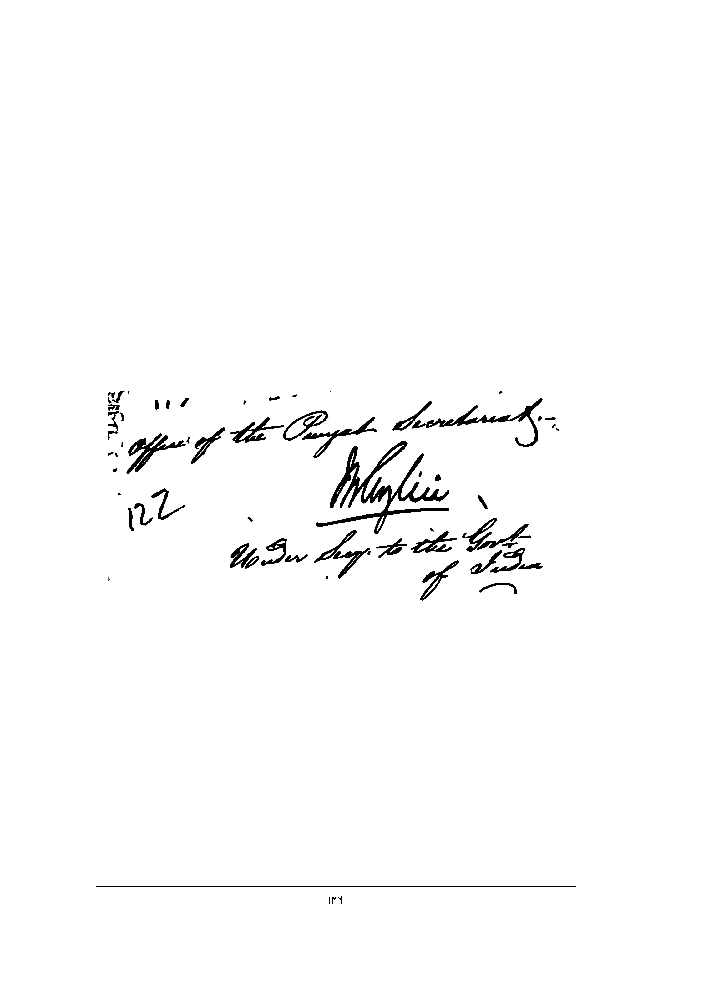 Office of the Punjab Secretariat.—
122
Under Secy. to the Govt
of India
١٣٩